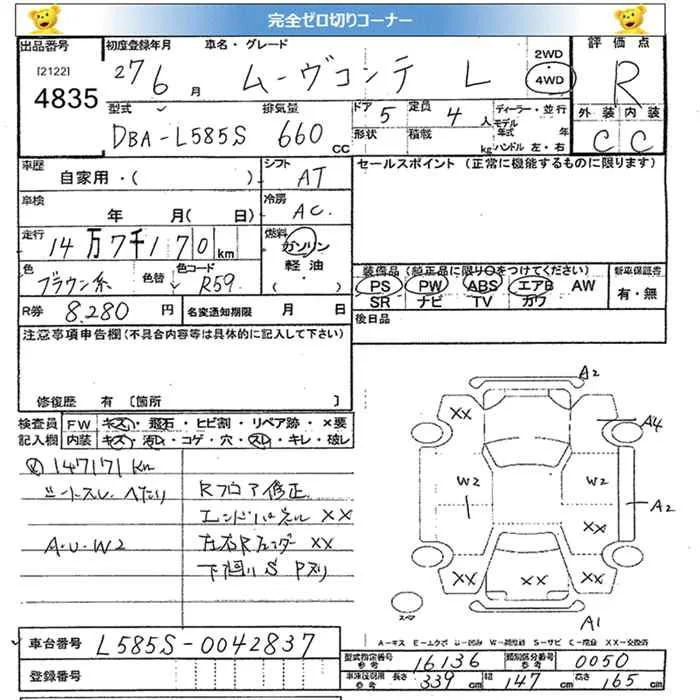 完全ゼロ切りコーナー
出品番号 初度登録年月 車名・グレード 2WD 評価点
[2122] 4835 27 6月 ムーヴコンテ L 4WD R
型式 排気量 ドア 5 定員 4人 ディーラー・並行 外装 内装
DBA-L585S 660cc 形状 積載 kg モデル年式 年 C C
ハンドル 左・右
車歴 シフト セールスポイント (正常に機能するものに限ります)
自家用・( ) AT
車検 冷房
年 月( 日) AC.
走行 燃料
14万7千170km ガソリン
色 色替 色コード 軽油 装備品(純正品に限り○をつけてください) 新車保証書
ブラウン系 R59 ( ・ ) PS PW ABS エアB AW 有・無
SR ナビ TV カワ
R券 8,280円 名変通知期限 月 日 後日品
注意事項申告欄(不具合内容等は具体的に記入して下さい)
修復歴 有 [箇所 ]
検査員 FW キズ・飛石・ヒビ割・リペア跡・×要
記入欄 内装 キズ・汚れ・コゲ・穴・スレ・キレ・破レ
147171km
シートスレ・へたり Rフロア修正
エンドパネル XX
A・U・W2 左右Rフェンダー XX
下廻りS Pヌリ
A2
XX A4
W2 W2 A2
XX
XX XX XX
スペア A1
A-キズ E-エクボ U-凹み W-補修跡 S-サビ C-腐食 XX-交換済
車台番号 L585S-0042837
登録番号
型式指定番号 参考 16136 類別区分番号 参考 0050
車検証記載 参考 長さ 339cm 幅 147cm 高さ 165cm